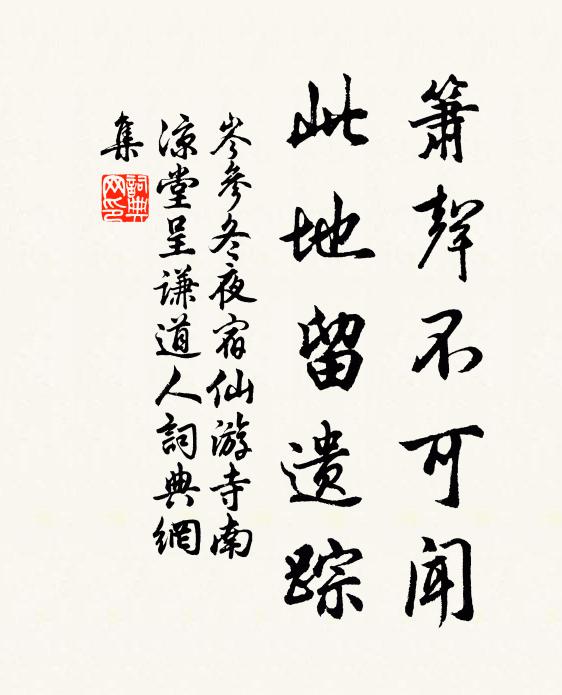 箫聲不可闻
此地留遗踪
岑參冬夜宿仙游寺南
凉堂呈谦道人詞典網
集
詞典
网印